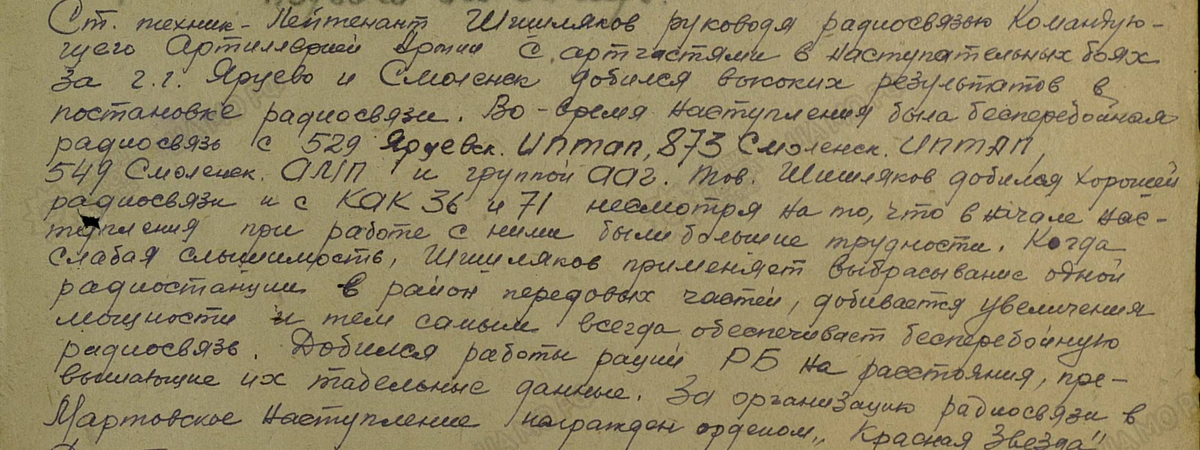 Ст. техник-Лейтенант Шишляков руководя радиосвязью Командую-
щего Артиллерией Армии с артчастями в наступательных боях
за г.г. Ярцево и Смоленск добился высоких результатов в
постановке радиосвязи. Во-время наступления была бесперебойная
радиосвязь с 529 Ярцевск. ИПТАП, 873 Смоленск. ИПТАП,
549 Смоленск. АМП и группой ААГ. Тов. Шишляков добился хорошей
радиосвязи и с КАК 36 и 71 несмотря на то, что в начале нас-
тупления при работе с ними были большие трудности. Когда
слабая слышимость, Шишляков применяет выбрасывание одной
радиостанции в район передовых частей, добивается увеличения
мощности и тем самым всегда обеспечивает бесперебойную
радиосвязь. Добился работы раций РБ на расстояния, пре-
вышающие их табельные данные. За организацию радиосвязи в
Мартовское наступление награжден орденом „Красная Звезда"